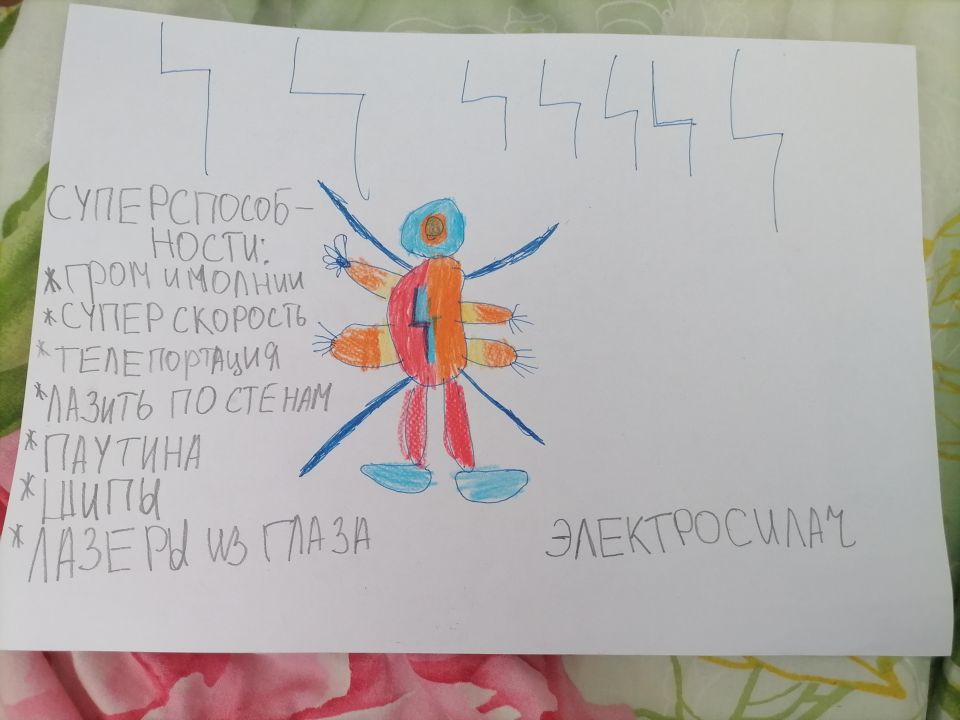 СУПЕРСПОСОБ-
НОСТИ:
* ГРОМ И МОЛНИИ
* СУПЕР СКОРОСТЬ
* ТЕЛЕПОРТАЦИЯ
* ЛАЗИТЬ ПО СТЕНАМ
* ПАУТИНА
* ШИПЫ
* ЛАЗЕРЫ ИЗ ГЛАЗА
ЭЛЕКТРОСИЛАЧ